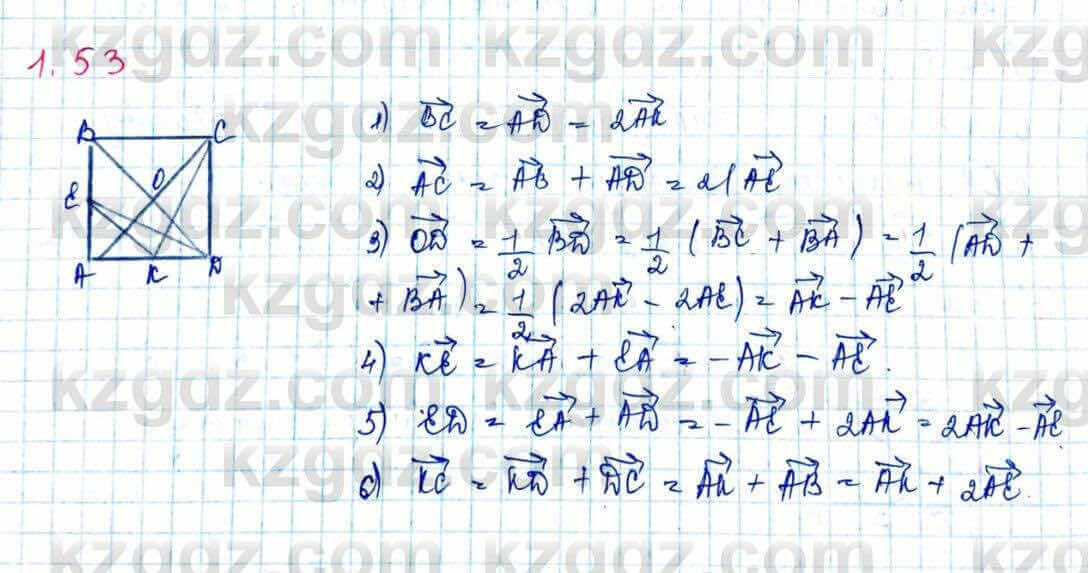 1.53
B C
O
E
A K D
1) BC⃗ = AD⃗ = 2AK⃗
2) AC⃗ = AB⃗ + AD⃗ = 2(AE⃗
3) OD⃗ = 1/2 BD⃗ = 1/2 (BC⃗ + BA⃗) = 1/2 (AD⃗ +
+ BA⃗) = 1/2 (2AK⃗ - 2AE) = AK⃗ - AE⃗
4) KE⃗ = KA⃗ + EA⃗ = -AK⃗ - AE⃗.
5) ED = EA⃗ + AD⃗ = -AE⃗ + 2AK⃗ = 2AK⃗ - AE⃗
6) KC⃗ = KD⃗ + DC⃗ = AK⃗ + AB⃗ = AK⃗ + 2AE⃗.
kzgdz.com